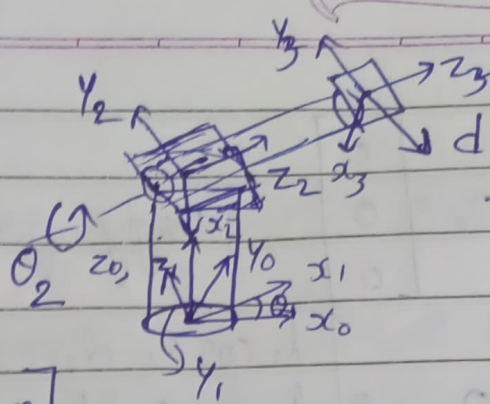 Y3
Z3
Y2
d
Z2 X3
X2
θ2
Z0,
Y0
X1
θ
X0
Y1